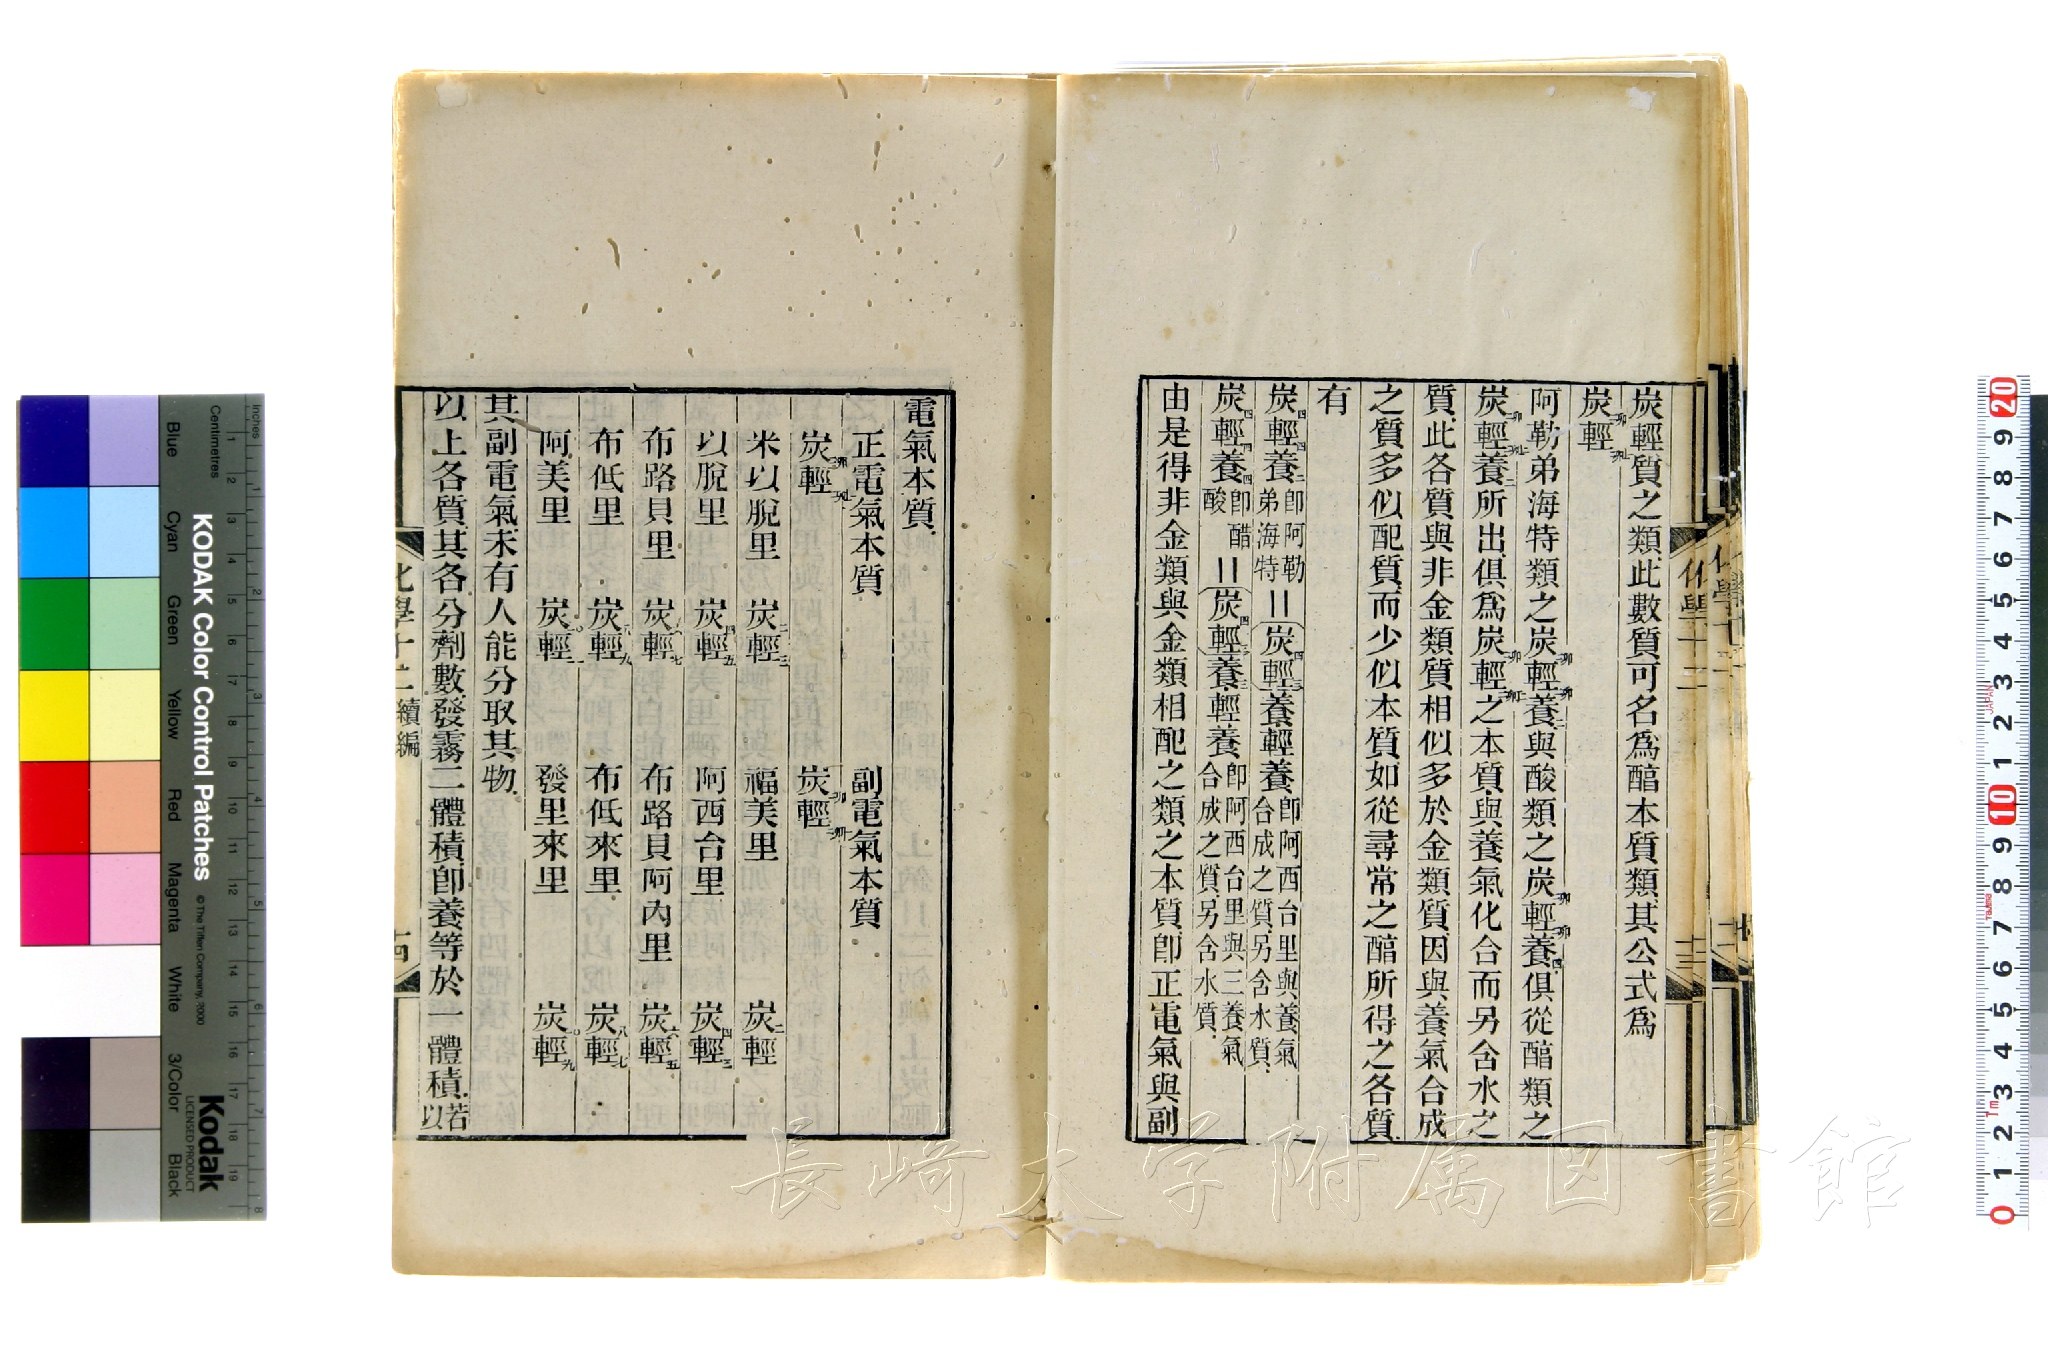 炭輕質之類此數質可名爲醕本質類其公式爲
炭輕
阿勒弟海特類之炭輕養與酸類之炭輕養俱從醕類之
炭輕養所出俱爲炭輕之本質與養氣化合而另含水之
質此各質與非金類質相似多於金類質因與養氣合成
之質多似配質而少似本質如從尋常之醕所得之各質
有
炭四輕四養二卽阿勒弟海特=炭四輕三養輕養卽阿西台里與養氣合成之質另含水質
炭四輕四養四卽醋酸=炭四輕三養三輕養卽阿西台里與三養氣合成之質另含水質
由是得非金類與金類相配之類之本質卽正電氣與副
電氣本質
正電氣本質 副電氣本質
炭輕 炭輕
米以脫里 炭二輕三 福美里 炭二輕
以脫里 炭四輕五 阿西台里 炭四輕三
布路貝里 炭六輕七 布路貝阿內里 炭六輕五
布低里 炭八輕九 布低來里 炭八輕七
阿美里 炭一〇輕一一 發里來里 炭一〇輕九
其副電氣未有人能分取其物
以上各質其各分劑數發霧二體積卽養等於一體積若以
化學十二 續編
化學十二
十三
長崎大学附属図書館
KODAK Color Control Patches
© The Tiffen Company, 2000
Kodak
LICENSED PRODUCT
Blue Cyan Green Yellow Red Magenta White 3/Color Black
inches
Centimetres